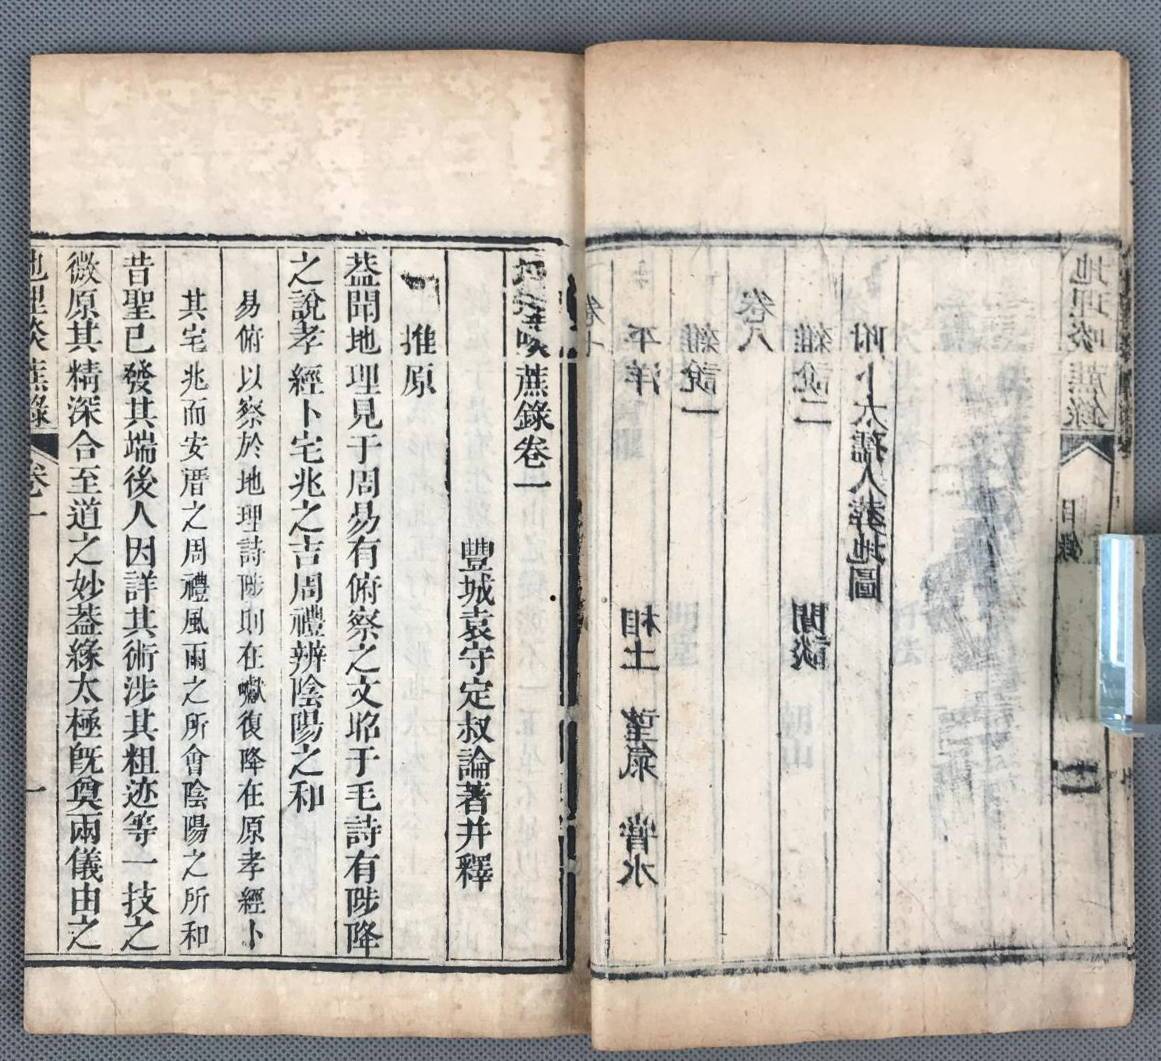 地理啖蔗錄 目錄 二
附卜太孺人葬地圖
雜說二 閒談
卷八
雜說一
平洋 相土 望氣 嘗水
卷七
地理啖蔗錄卷一
豐城袁守定叔論著并釋
推原
葢聞地理見于周易有俯察之文昉于毛詩有陟降
之說孝經卜宅兆之吉周禮辨陰陽之和
易俯以察於地理詩陟則在巘復降在原孝經卜
其宅兆而安厝之周禮風雨之所會陰陽之所和
昔聖已發其端後人因詳其術涉其粗迹等一技之
微原其精深合至道之妙葢緣太極旣奠兩儀由之
地理啖蔗錄 卷一 一